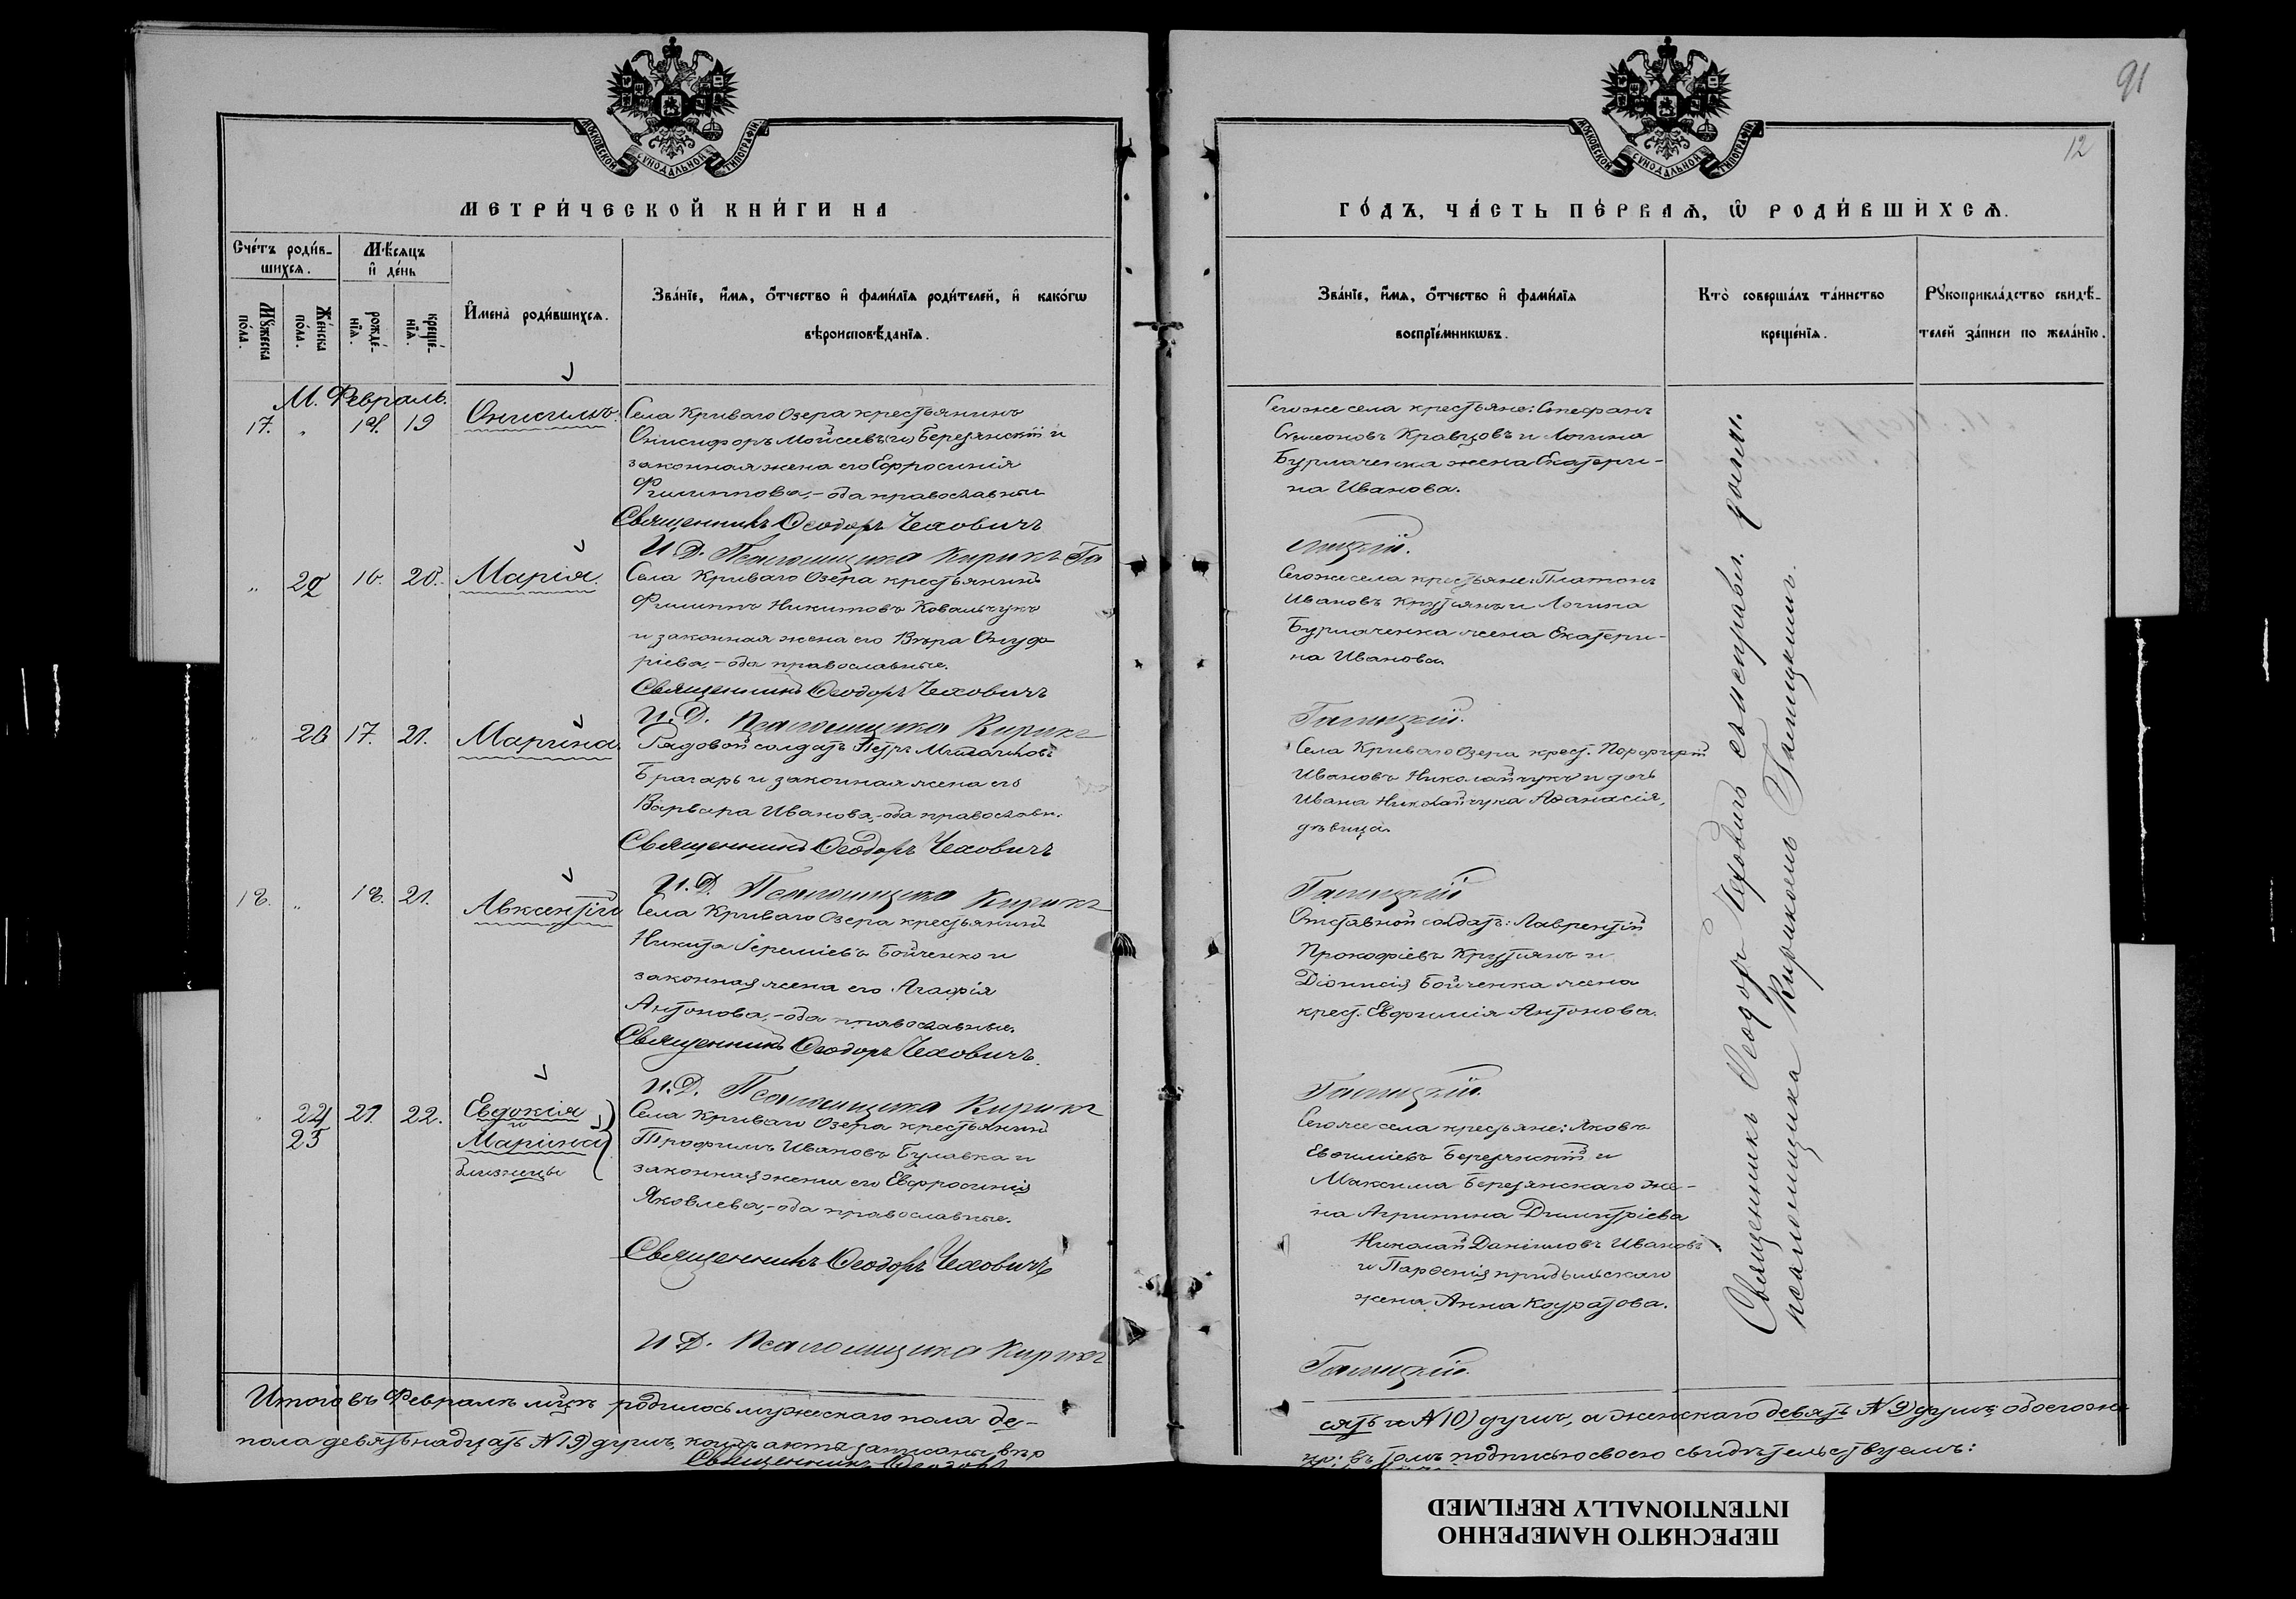 91
12
МОСКОВСКОЙ СУНОДАЛЬНОЙ ТИПОГРАФІИ
МОСКОВСКОЙ СУНОДАЛЬНОЙ ТИПОГРАФІИ
МЕТРИ́ЧЕСКОЙ КНИ́ГИ НА
ГО́ДЪ, ЧА́СТЬ ПЕ́РВАѦ, Ѡ҆ РОДИ́ВШИХСѦ.
Счéтъ роди́в-
шихсѧ.
Мѣ́сѧцъ
и҆ де́нь
Мꙋ́жеска
по́ла.
Же́нска
по́ла.
рожде́-
нїѧ.
креще́-
нїѧ.
И҆мена̀ роди́вшихсѧ.
Зва́нїе, и҆́мѧ, ѻ҆́тчество и҆ фами́лїѧ роди́телей, и҆ како́гѡ
вѣроисповѣ́данїѧ.
Зва́нїе, и҆́мѧ, ѻ҆́тчество и҆ фами́лїѧ
воспрїе́мникѡвъ.
Кто̀ соверша́лъ та́инство
креще́нїѧ.
Рꙋкоприкла́дство свидѣ́-
телей за́писи по жела́нїю.
М. Февраль.
17. „ 14. 19 Онисимъ
Села Криваго Озера крестьянинъ
Онисифоръ Моисеевъ Березянскій и
законная жена его Ефросинія
Филиппова,- оба православные
Священникъ Ѳеодоръ Чеховичъ
И. Д. Псаломщика Кирикъ Га
Сего же села крестьяне: Стефанъ
Симеоновъ Кравцовъ и Логина
Бурлаченка жена Екатери-
на Иванова.
лицкій.
„ 22 16. 20. Марія.
Села Криваго Озера крестьянинъ
Филиппъ Никитовъ Ковальчукъ
и законная жена его Вѣра Онуф
ріева,- оба православные.
Священникъ Ѳеодоръ Чеховичъ
И. Д. Псаломщика Кирикъ
Сего же села крестьяне: Платонъ
Ивановъ Крутянъ и Логина
Бурлаченка жена Екатери-
на Иванова
Галицкій.
„ 23 17. 21. Марина.
Рядовой солдатъ Петръ
Брагарь и законная жена его
Варвара Иванова,- оба православн.
Священникъ Ѳеодоръ Чеховичъ
И. Д. Псаломщика Кирикъ
Села Криваго Озера крест. Порфирій
Ивановъ Николайчукъ и дочь
Ивана Николайчука Аѳанасія,
дѣвица.
Галицкій
18. „ 18. 21. Авксентій
Села Криваго Озера крестьянинъ
Никита Іереміевъ Бойченко и
законная жена его Агафія
Антонова,- оба православные.
Священникъ Ѳеодоръ Чеховичъ.
И. Д. Псаломщика Кирикъ
Отставной солдатъ: Лаврентій
Прокофіевъ Крутянъ и
Діонисія Бойченка жена
крест. Евфимія Антонова.
Галицкій.
„ 24 21. 22. Евдокія
и
25 Марина
близнецы
Села Криваго Озера крестьянинъ
Трофимъ Ивановъ Булавка и
законная жена его Евфросинія
Яковлева,- оба православные.
Священникъ Ѳеодоръ Чеховичъ
И. Д. Псаломщика Кирикъ
Сего же села крестьяне: Яковъ
Евѳиміевъ Березянскій и
Максима Березянскаго же-
на Агрипина Димитріева
Николай Даніиловъ Ивановъ
и Парѳенія
жена Анна
Галицкій.
Священникъ Ѳеодоръ Чеховичъ съ исправл. долж.
псаломщика Кирикомъ Галицкимъ.
Итого въ Февралѣ мцѣ родилось мужескаго пола де-
сять и № 10) душъ, а женскаго девять № 9) душъ обоего же
пола девятнадцать № 19) душъ, коихъ акты записаны вѣр
но: въ томъ подписью своею свидѣтельствуемъ:
Священникъ Ѳеодоръ
ПЕРЕСНЯТО НАМЕРЕННО
INTENTIONALLY REFILMED